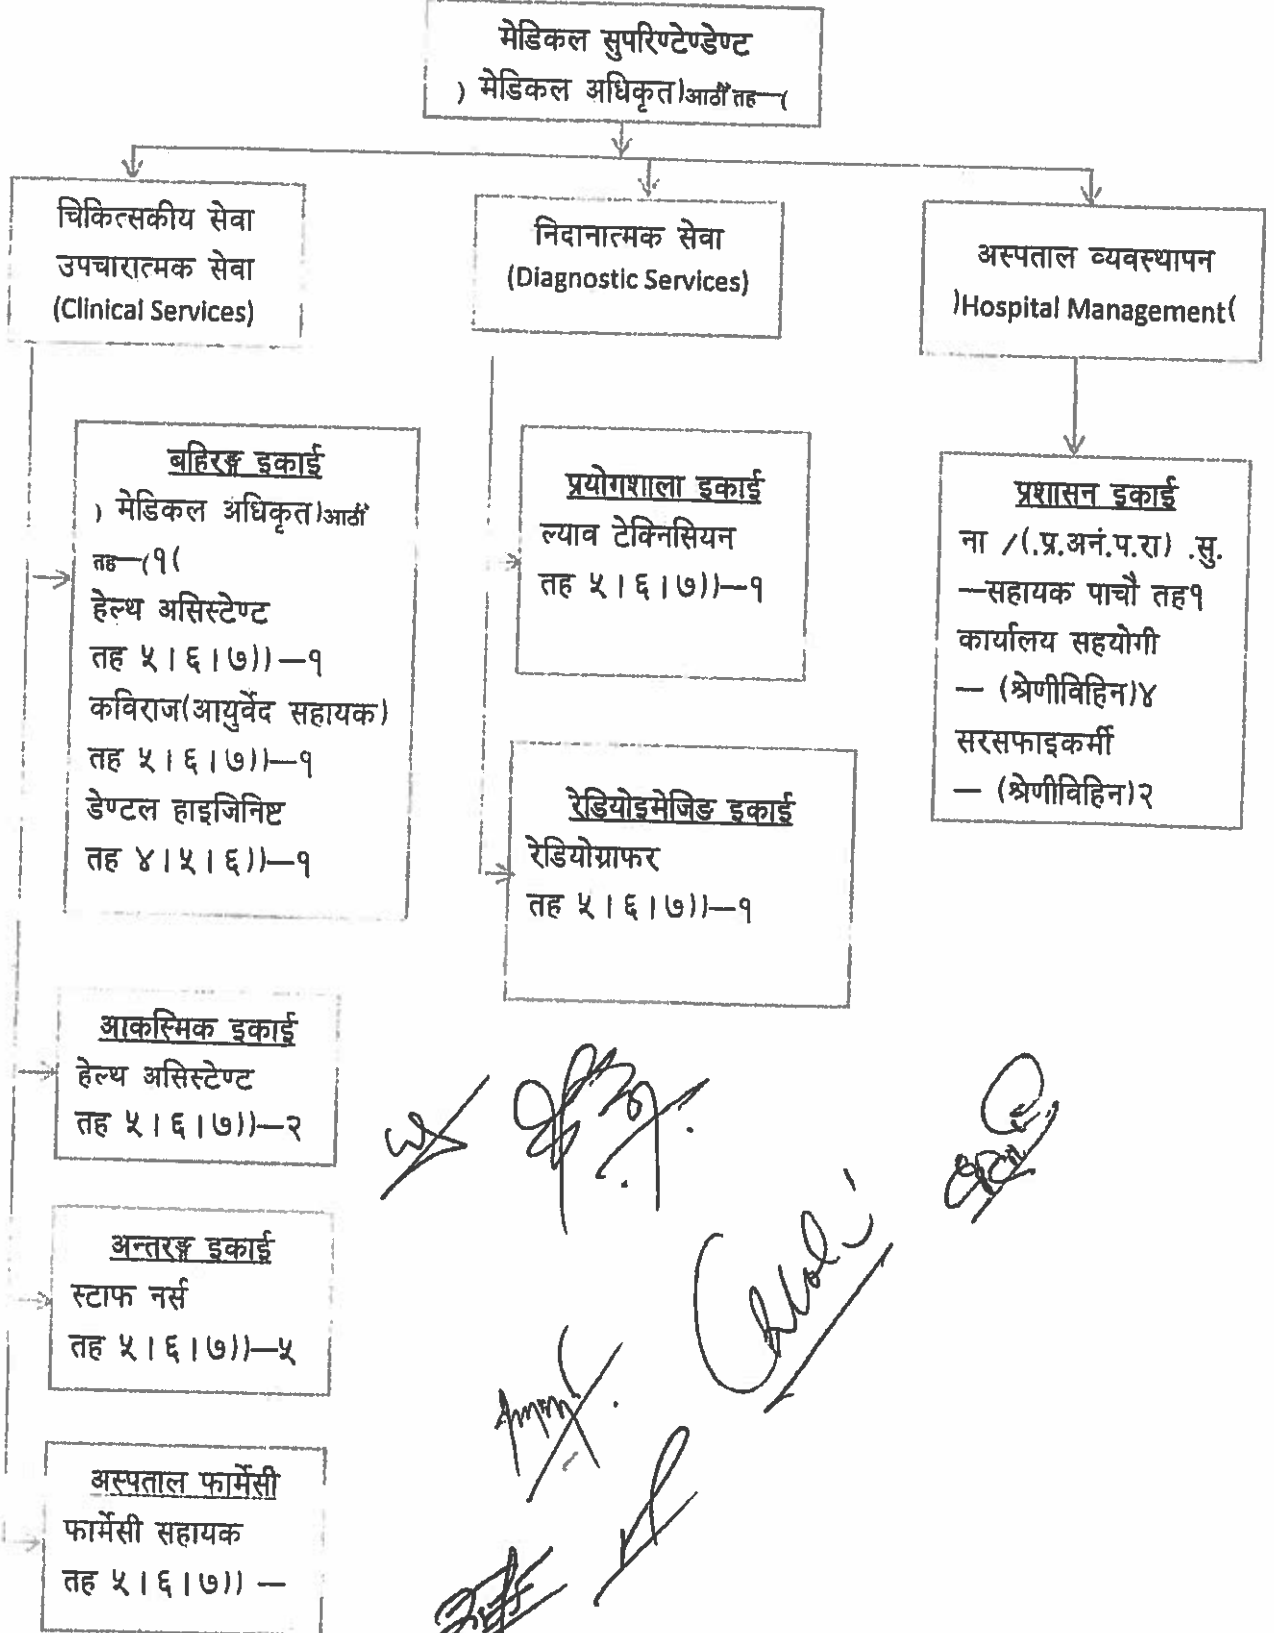 मेडिकल सुपरिण्टेण्डेण्ट
) मेडिकल अधिकृत)आठौँ तह—(
चिकित्सकीय सेवा
उपचारात्मक सेवा
(Clinical Services)
निदानात्मक सेवा
(Diagnostic Services)
अस्पताल व्यवस्थापन
)Hospital Management(
बहिरङ्ग इकाई
) मेडिकल अधिकृत)आठौँ
तह—(१(
हेल्थ असिस्टेण्ट
तह ५।६।७))—१
कविराज(आयुर्वेद सहायक)
तह ५।६।७))—१
डेण्टल हाइजिनिष्ट
तह ४।५।६))—१
प्रयोगशाला इकाई
ल्याव टेक्निसियन
तह ५।६।७))—१
रेडियोइमेजिङ इकाई
रेडियोग्राफर
तह ५।६।७))—१
प्रशासन इकाई
ना /(.प्र.अनं.प.रा) .सु.
—सहायक पाचौ तह१
कार्यालय सहयोगी
— (श्रेणीविहिन)४
सरसफाइकर्मी
— (श्रेणीविहिन)२
आकस्मिक इकाई
हेल्थ असिस्टेण्ट
तह ५।६।७))—२
अन्तरङ्ग इकाई
स्टाफ नर्स
तह ५।६।७))—५
अस्पताल फार्मेसी
फार्मेसी सहायक
तह ५।६।७)) —